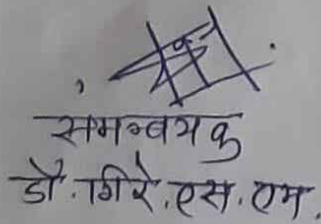 समन्वयक
डॉ. गिरे. एस. एम.